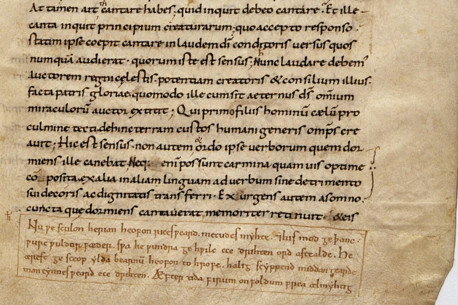 At tamen art̄ cantare habes. quid inquit debeo cantare. Et ille
canta inquit principium creaturarum. quo accepto responso
statim ipse coepit cantare in laudem dī conditoris uersus quos
numquā audierat. quorum iste est sensus; Nunc laudare debem̄
auctorem regni celestis. potentiam creatoris & consilium illius.
facta patris gloriae. quomodo ille cum sit aeternus d̄s omnium
miraculorū auctor extitit; Qui primo filiis hominū cælū pro
culmine tecti dehinc terram custos humani generis omp̄s cre
auit; Hic est sensus. non autem ordo ipse uerborum quem dor
miens ille canebat. Neq; enī possunt carmina quamuis optime
cōposita. ex alia in aliam linguam ad uerbum sine detrimento
sui decoris ac dignitatis transferri. Exurgens autem a somno.
cuncta quae dormiens cantauerat memoriter retinuit. &eis
Nu ƿe sculon herian heofon rices ƿeard. metudes myhte. ⁊his mod geþanc.
ƿurc ƿuldor fæder. sƿa he ƿundra gehƿilc ece drihten ord astealde. He
ærest gesceop ylda bearnū heofon to hrofe. halig scyppend middan gearde
mancynnes ƿeard ece drihten. Æfter tida firum on foldum frea ælmyhtig